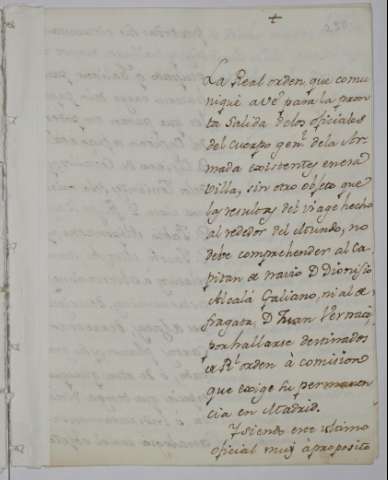 +
220
La Real orden que comu
niqué a V.e para la pron
ta Salida de los oficiales
del Cuerpo gen.l de la Ar
mada existentes en esa
Villa, sin otro objeto que
las resultas del viage hecho
al rededor del Mundo, no
debe comprehender al Ca
pitan de navio D. Dionisio
Alcalá Galiano, ni al de
fragata, D. Juan Vernaci,
por hallarse destinados
de R.l orden à comision
que exige su permanen
cia en Madrid.
Y siendo este ultimo
oficial muy à proposito